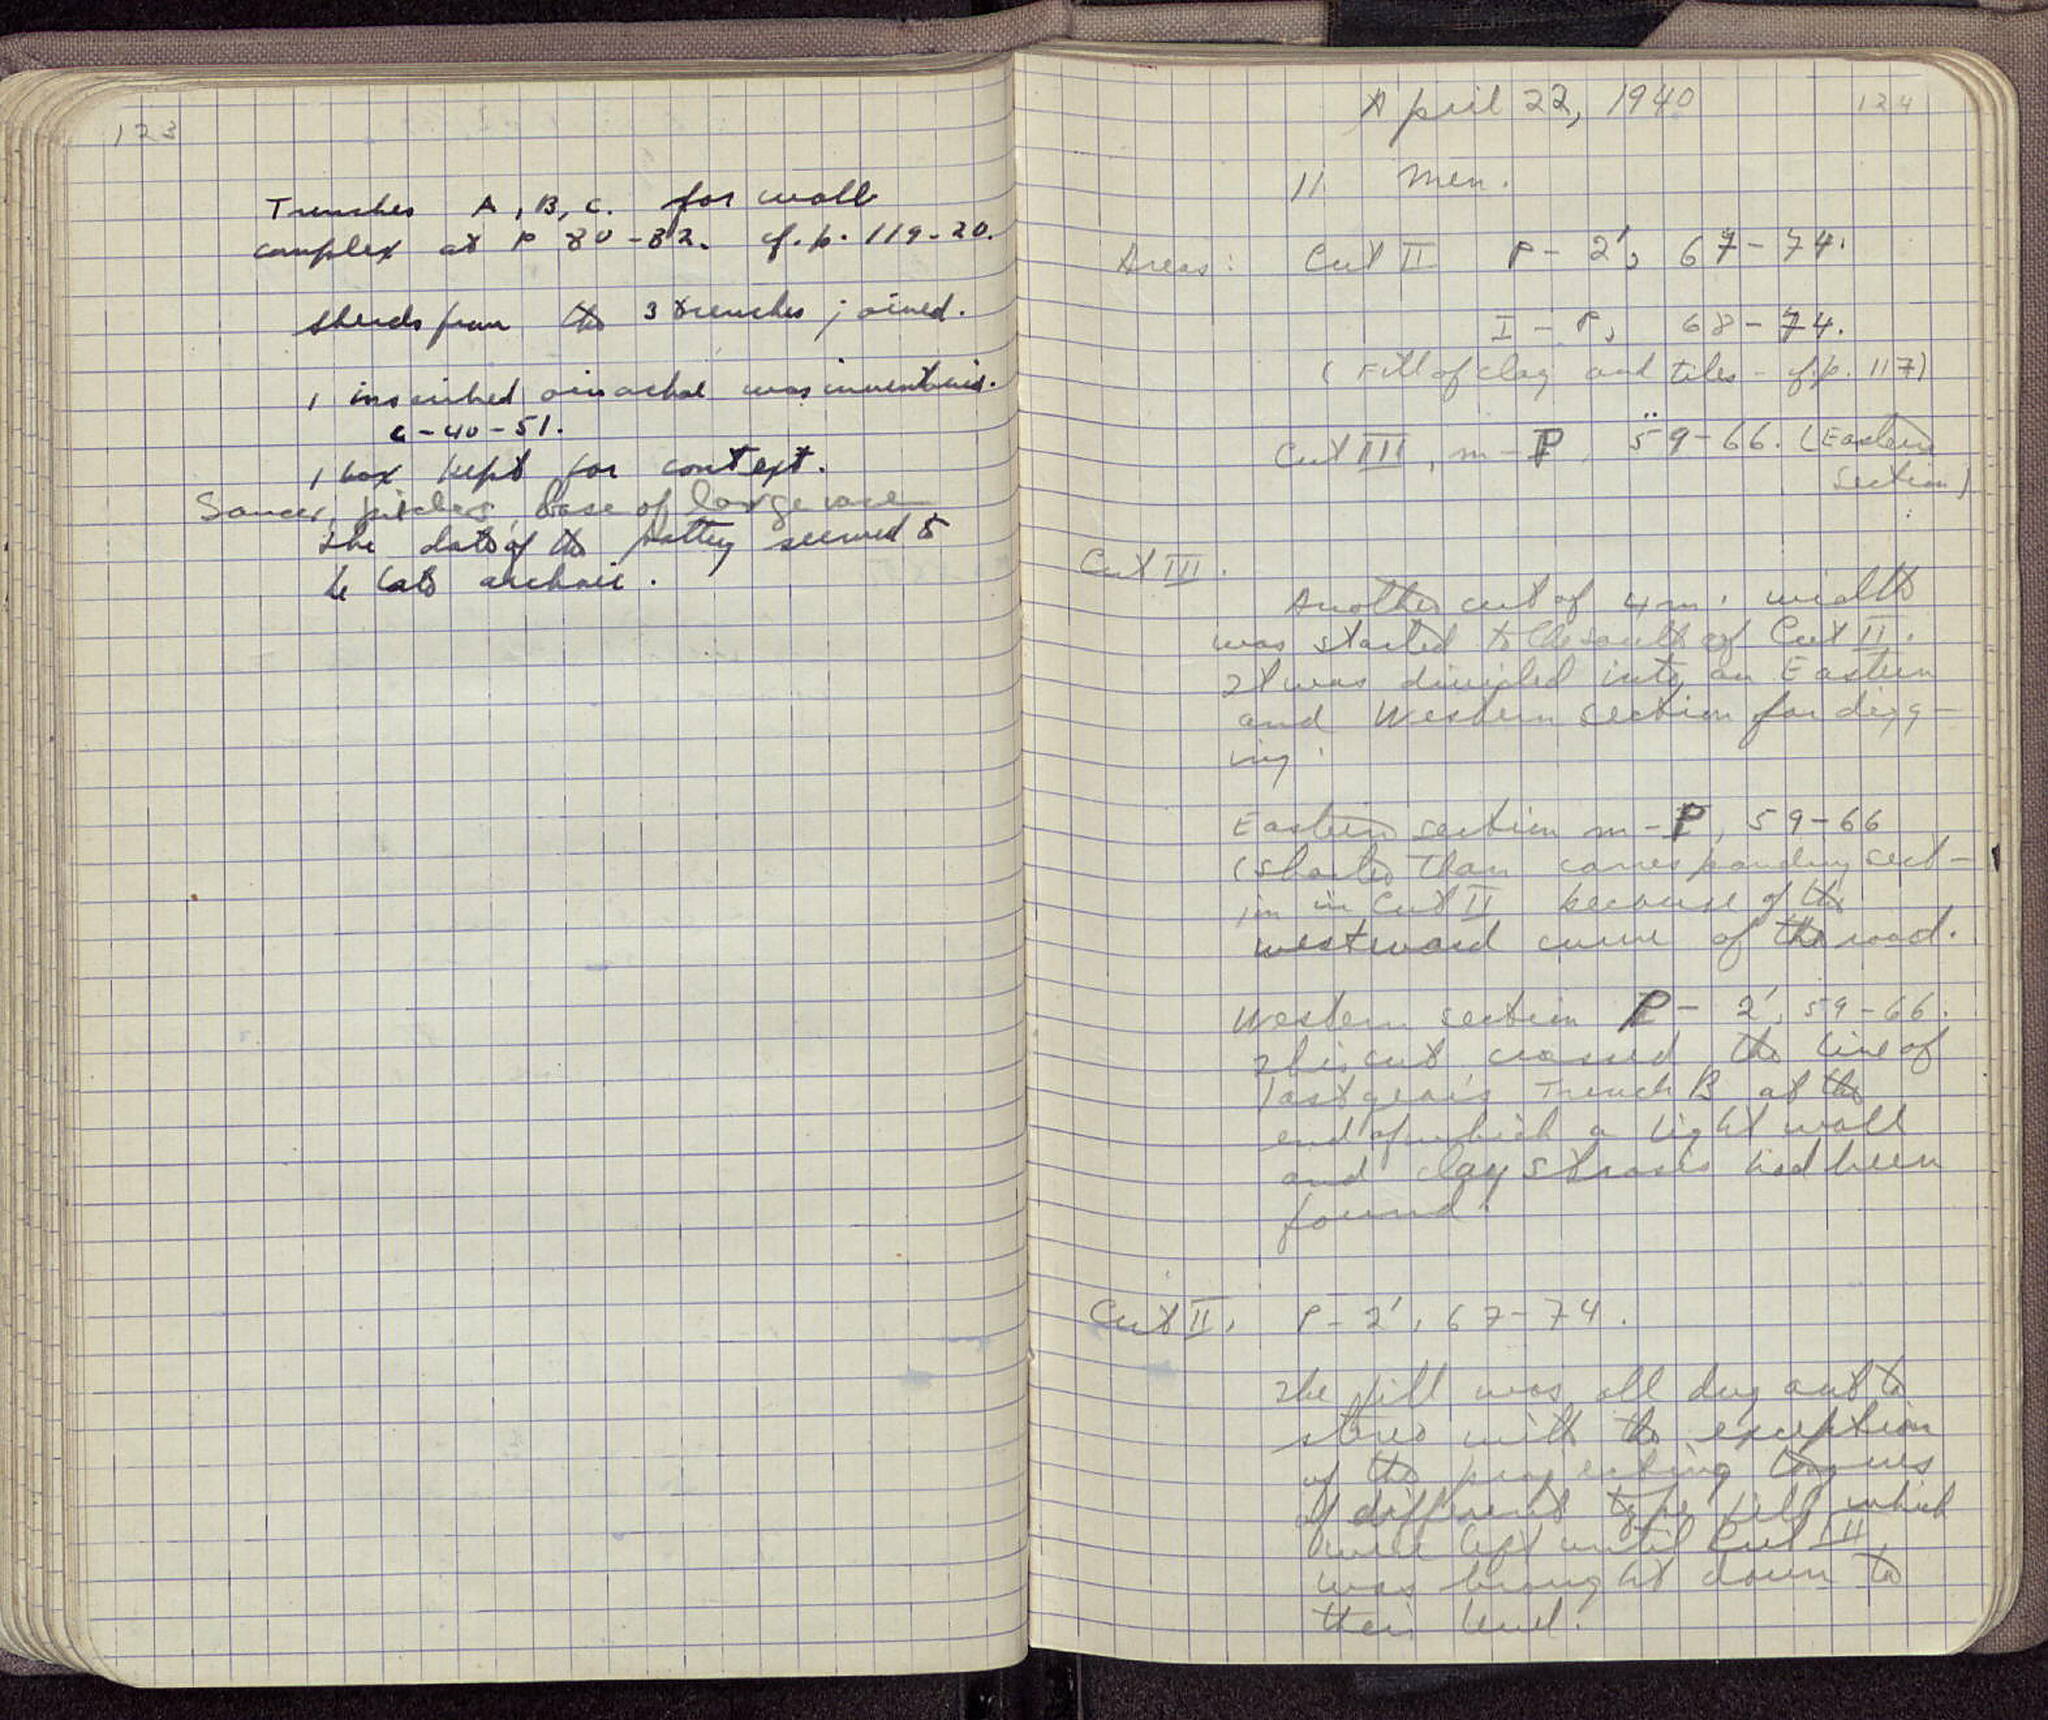 123
Trenches A, B, C. for wall
complex at P 80-82. cf. p. 119-20.
Sherds from the 3 trenches joined.
1 inscribed oinochoe was inventoried.
C-40-51.
1 box kept for context.
Saucer, pitcher, base of large vase
The date of the pottery seemed to
be late archaic.
April 22, 1940
124
11 men.
Areas: Cut II P-2', 67-74.
I-P, 68-74.
(Fill of clay and tiles - cf. p. 117)
Cut III, m-P, 59-66. (Eastern
Section)
Cut III.
Another cut of 4 m. width
was started to the south of Cut II.
It was divided into an Eastern
and Western section for digg-
ing.
Eastern section m-P, 59-66
(shorter than corresponding sect-
ion in Cut II because of the
westward curve of the road.
Western section P-2', 59-66.
This cut crossed the line of
last year's Trench B at the
end of which a light wall
and clay strosis had been
found.
Cut II. P-2', 67-74.
The fill was all dug out to
stereo with the exception
of the projecting tongues
of different type fill which
were left until Cut III
was brought down to
their level.